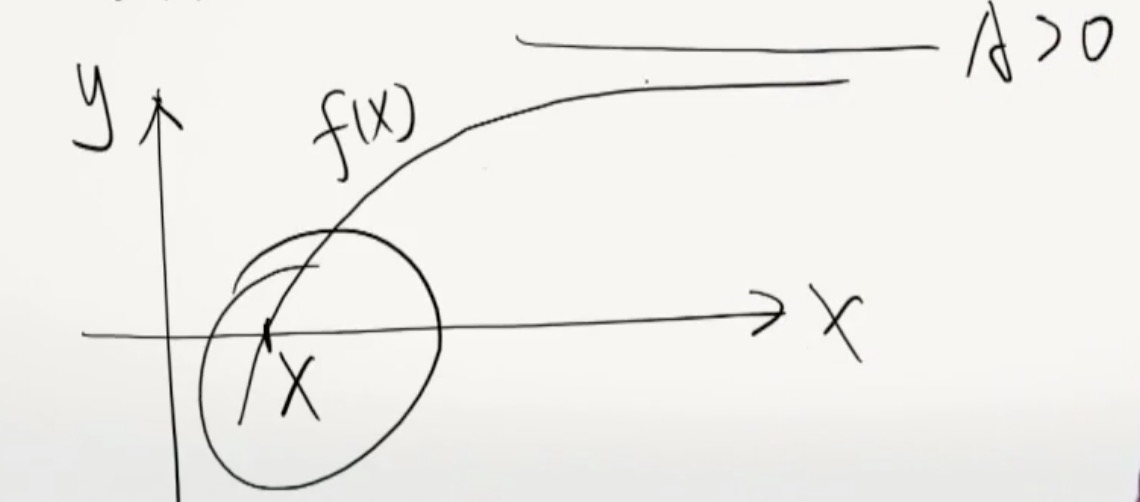 A>0
y
f(x)
x
X